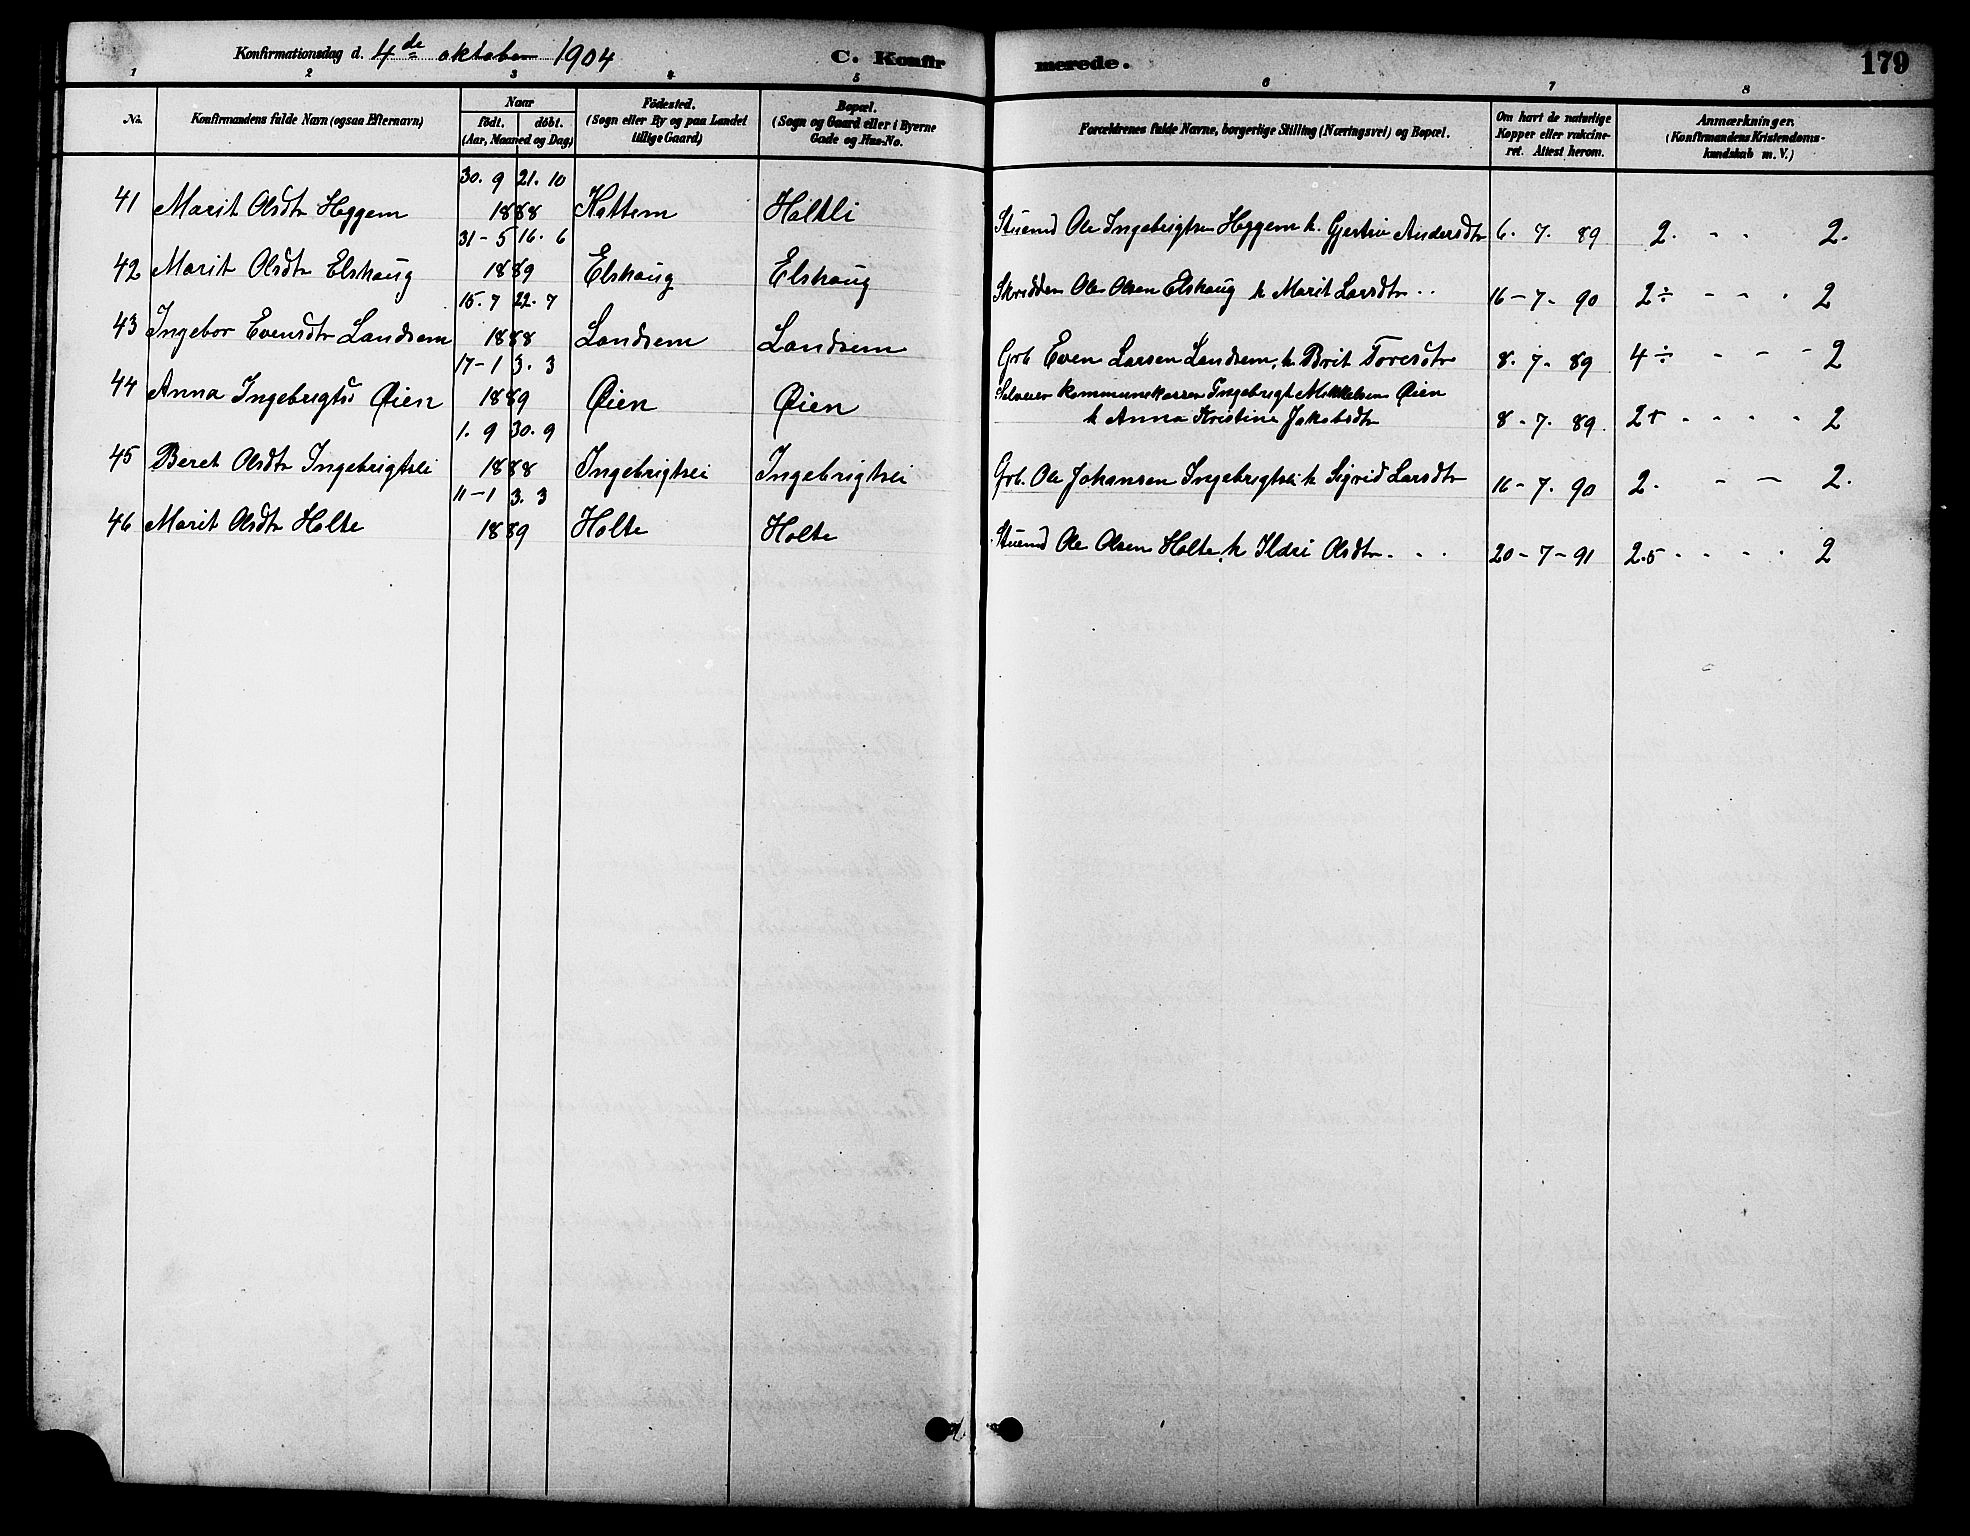 Konfirmationsdag d. 4de oktober 1904 C. Konfirmerede. 179
1 2 3 4 5 6 7 8
No. Konfirmandens fulde Navn (ogsaa Efternavn) Naar födt. döbt. (Aar, Maaned og Dag) Födested. (Sogn eller By og paa Landet tillige Gaard) Bopæl. (Sogn og Gaard eller i Byerne Gade og Hus-No. Forældrenes fulde Navne, borgerlige Stilling (Næringsvei) og Bopæl. Om havt de naturlige Kopper eller vakcineret. Attest herom. Anmærkninger. (Konfirmandens Kristendomskundskab m. V.)
30. 9 21. 10
41 Marit Olsdtr Heggem 1888 Kattem Haltli Stuemd Ole Ingebrigtsen Heggem h. Gjertru Andersdtr 6. 7. 89 2. - - 2.
31-5 16. 6
42 Marit Olsdtr Elshaug 1889 Elshaug Elshaug Skrædder Ole Olsen Elshaug h Marit Larsdtr 16-7-90 2÷ - - . 2
15. 7 22. 7
43 Ingebor Evensdtr Landsem 1888 Landsem Landsem Grb. Even Larsen Landsem, h Brit Toresdtr 8. 7. 89 4÷ - - - 2
17-1 3. 3
44 Anna Ingebrigtsd Øien 1889 Øien Øien Selveier kommunekasser Ingebrigt Mikkelsen Øien
h Anna Kristine Jakobsdtr 8-7.89. 2+ - - - - 2
1. 9 30. 9
45 Beret Olsdtr Ingebrigtsli 1888 Ingebrigtsli Ingebrigtsli Grb. Ole Johansen Ingebrigtsli h Sigrid Larsdtr 16-7.90 2. - - 2.
11-1 3. 3
46 Marit Olsdtr Holte 1889 Holte Holte Stuemd Ole Olsen Holte, h Ildri Olsdtr. . . 20-7-91 2.5 - . - . 2